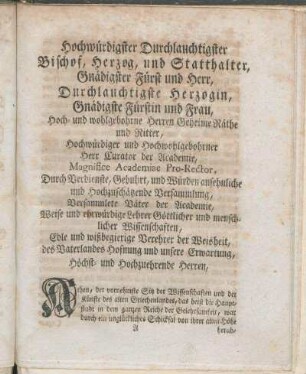 Hochwürdigster Durchlauchtigster
Bischof, Herzog, und Statthalter,
Gnädigster Fürst und Herr,
Durchlauchtigste Herzogin,
Gnädigste Fürstin und Frau,
Hoch- und wohlgebohrne Herren Geheime Räthe
und Ritter,
Hochwürdiger und Hochwohlgebohrner
Herr Curator der Academie,
Magnifice Academiae Pro-Rector,
Durch Verdienste, Geburt, und Würden ansehnliche
und Hochzuschätzende Versammlung,
Versammlete Väter der Academie,
Weise und ehrwürdige Lehrer Göttlicher und mensch-
licher Wissenschaften,
Edle und wißbegierige Verehrer der Weisheit,
des Vaterlandes Hofnung und unsere Erwartung,
Höchst- und Hochgeehrte Herren,
Athen, der vornehmste Sitz der Wissenschaften und der
Künste des alten Griechenlandes, das heißt die Haupt-
stadt in dem ganzen Reiche der Gelehrsamkeit, war
durch ein unglückliches Schicksal von ihrer alten Höhe
A herab-